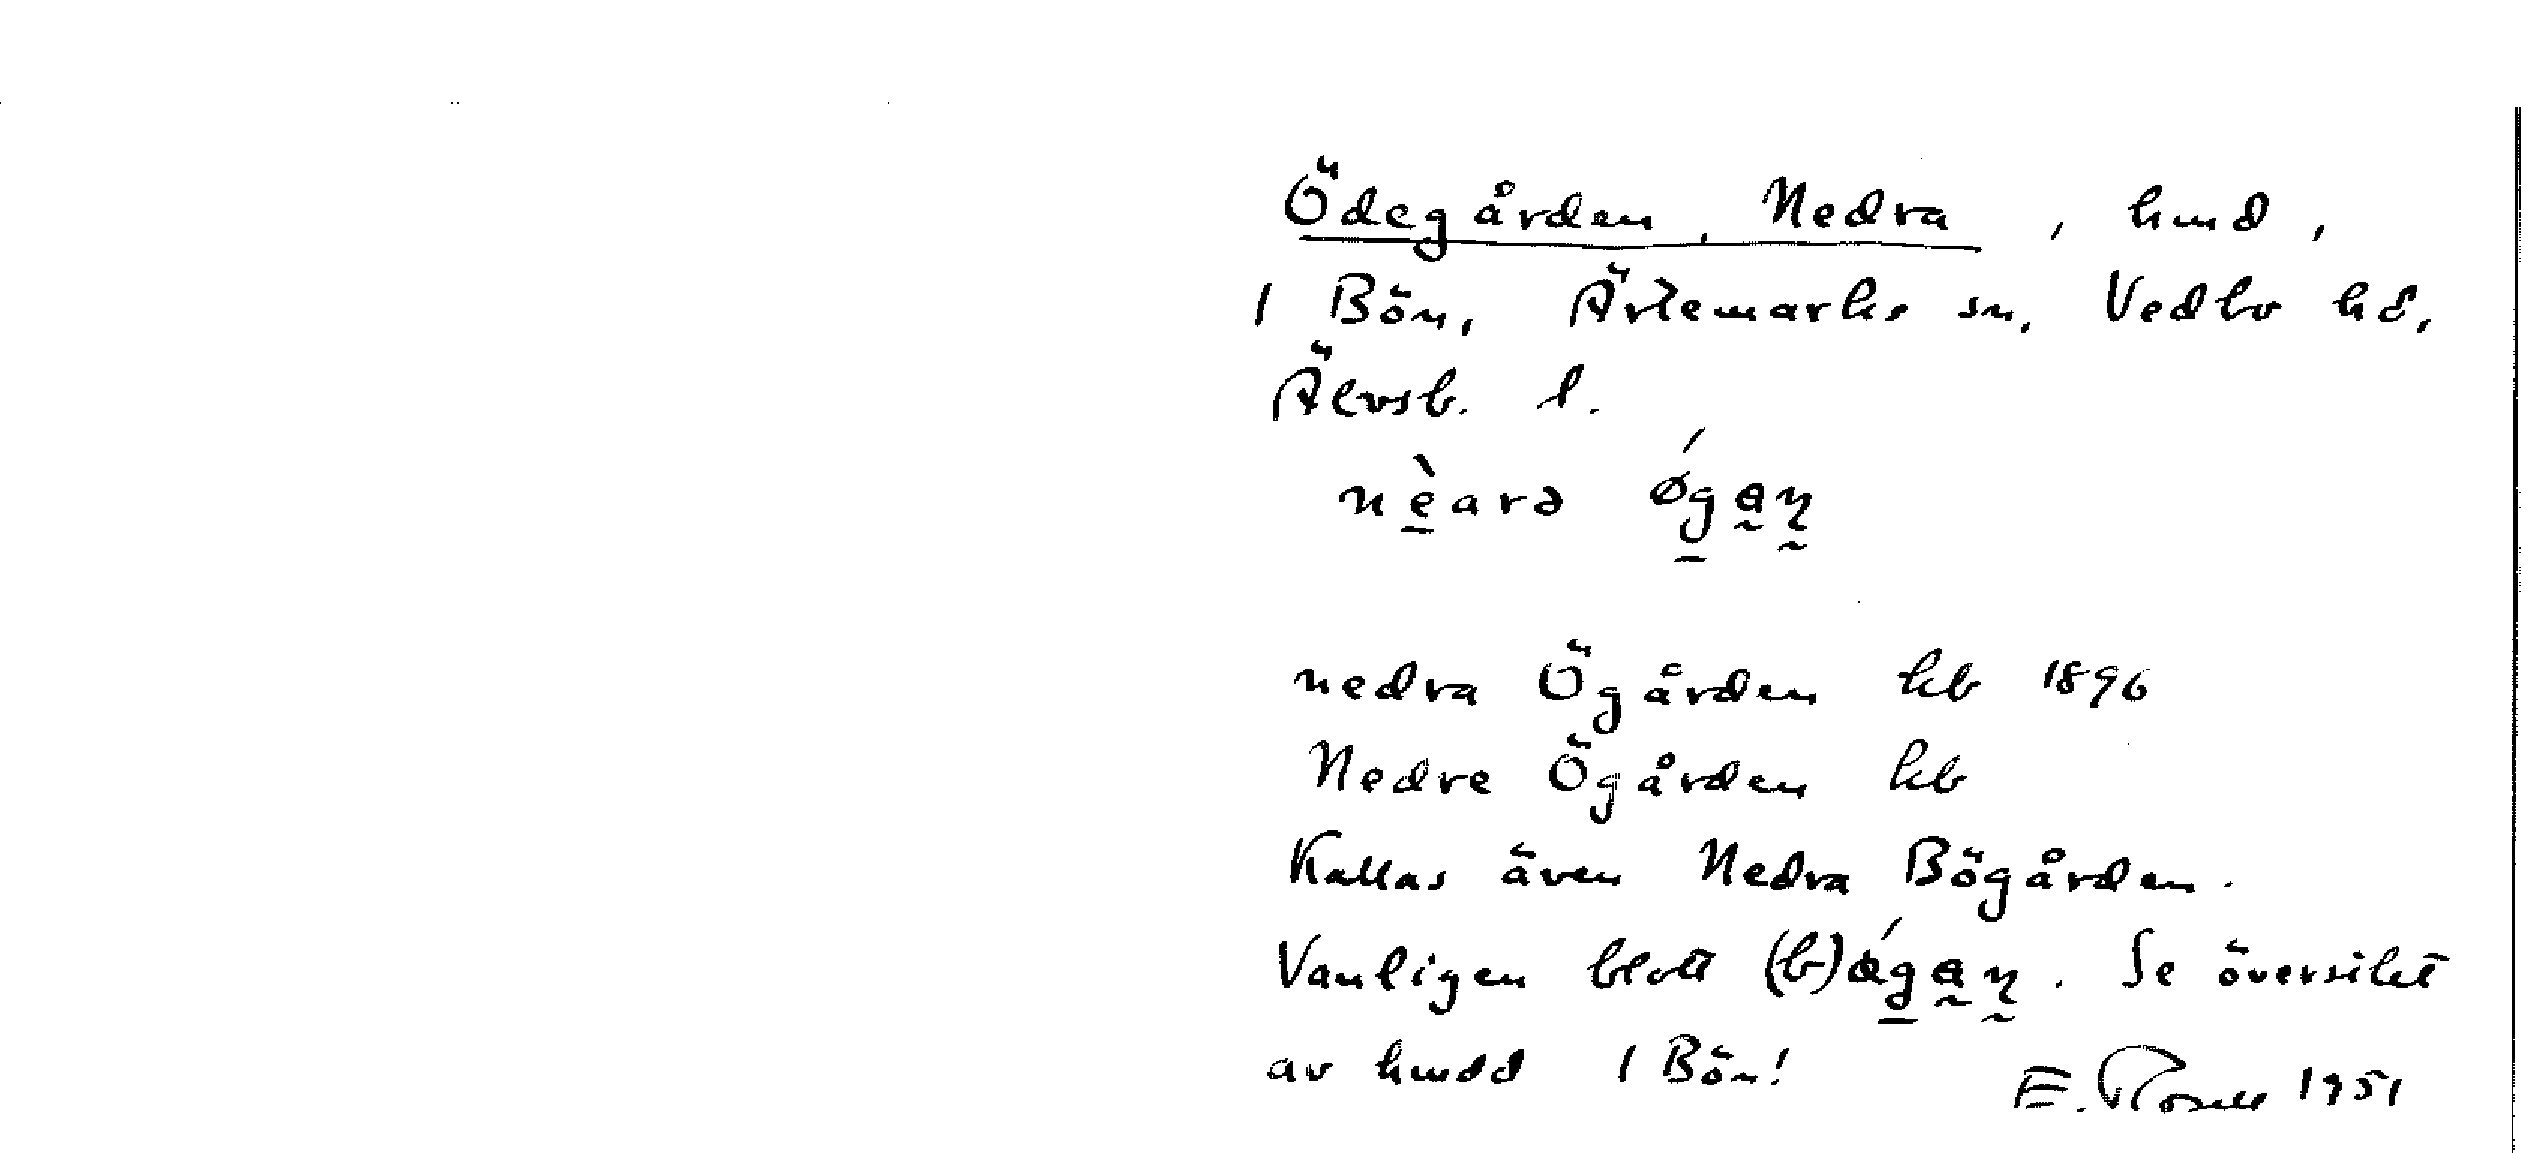 Ödegården, Nedra, hmd,
1 Bön, Ärtemarks sn, Vedbo hd,
Älvsb. l.
nèarə ǿgan̥
nedra Ögården kb 1896
Nedre Ögården kb
Kallas även Nedra Bögården.
Vanligen blott (b)ǿgan̥. Se översikt
av hmdd 1 Bön!
E. Rosell 1951